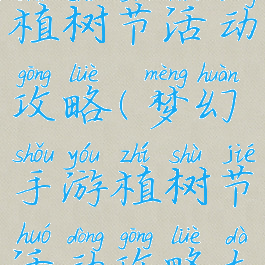 植树节活动
gōng lüè mèng huàn
攻略(梦幻
shǒu yóu zhí shù jié
手游植树节
huó dòng gōng lüè dà
活动攻略大